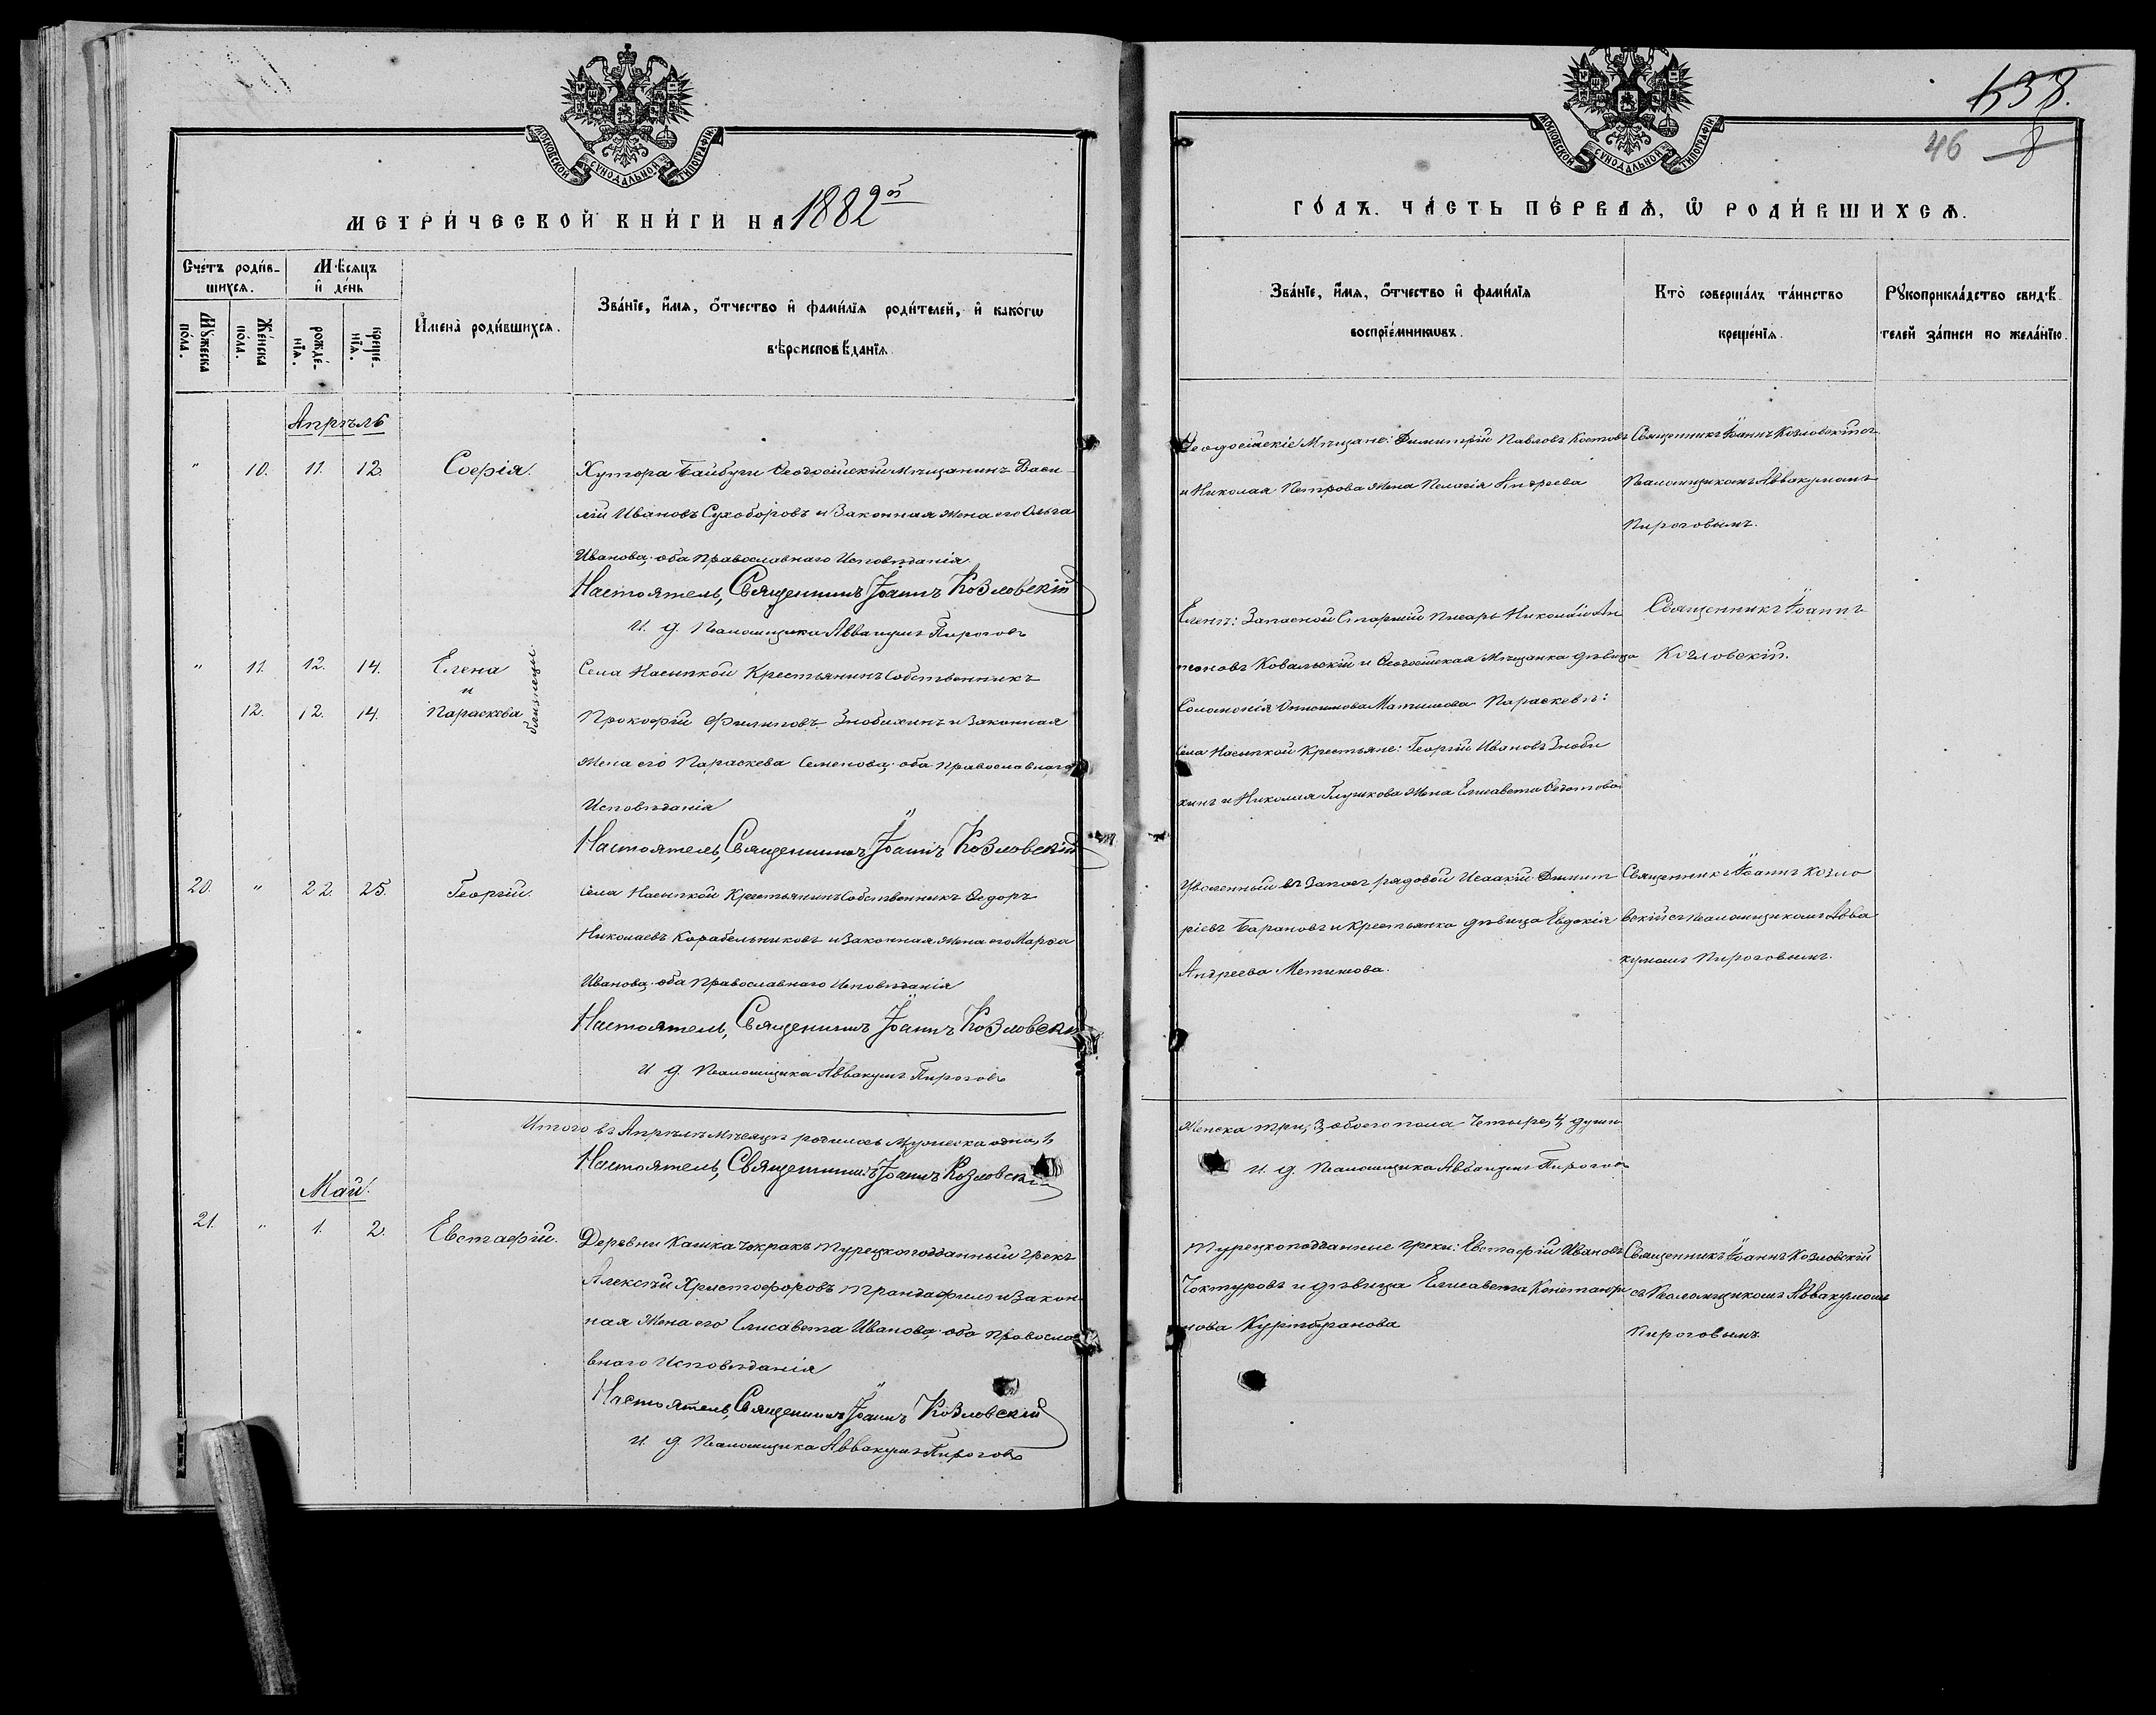 МОСКОВСКОЙ СѴНОДАЛЬНОЙ ТИПОГРАФІИ
МЕТРИ́ЧЕСКОЙ КНИ́ГИ НА 1882й
Счетъ роди́в-
шихся.
Мѣсяцъ
и҆ де́нь
Мꙋ́жеска
по́ла.
Же́нска
по́ла.
рожде́-
нїѧ.
креще́-
нїѧ.
И҆мена̀ роди́вшихсѧ.
Зва́нїе, и҆́мѧ, ѻ҆́тчество и҆ фами́лїѧ роди́телей, и҆ како́гѡ
вѣроисповѣ́данїѧ
Апрѣль
" 10. 11. 12. Софія.
Хутора Байбуги Ѳеодосійскій Мѣщанинъ Васи-
лій Ивановъ Сухоборовъ и Законная Жена его Ольга
Иванова, оба Православнаго Исповѣданія
Настоятель, Священникъ Іоаннъ Козловскій
И. д. Псаломщика Аввакумъ Пироговъ
" 11. 12. 14. Елена
и
12. 12. 14. Параскева
близнецы
Села Насыпкой Крестьянинъ Собственникъ
Прокофій Филиповъ Знобихинъ и Законная
Жена его Параскева Семенова, оба Православнаго
Исповѣданія
Настоятель, Священникъ Іоаннъ Козловскій
20. " 22. 25. Георгій.
Села Насыпкой Крестьянинъ Собственникъ Ѳедоръ
Николаевъ Корабельниковъ и Законная Жена его Марѳа
Иванова, оба Православнаго Исповѣданія
Настоятель, Священникъ Іоаннъ Козловскій
И. д. Псаломщика Аввакумъ Пироговъ
Итого въ Апрѣлѣ Мѣсяцѣ родилось Мужеска одна, 1,
Настоятель, Священникъ Іоаннъ Козловскій
Май.
21. " 1. 2. Евстафій.
Деревни Кашка Чокракъ Турецкоподданный Грекъ
Алексѣй Христофоровъ Трандафило и Закон
ная Жена его Елисавета Иванова, оба Правосла
внаго Исповѣданія
Настоятель, Священникъ Іоаннъ Козловскій
И. д. Псаломщика Аввакумъ Пироговъ
МОСКОВСКОЙ СѴНОДАЛЬНОЙ ТИПОГРАФІИ
138.
46 8
ГО́ДЪ. ЧА́СТЬ ПЕ́РВАѦ, Ѡ҆ РОДИ́ВШИХСѦ.
Зва́нїе, и҆́мѧ, ѻ҆́тчество и҆ фами́лїѧ
воспрїе́мникѡвъ.
Кто̀ соверша́лъ та́инство
креще́нїѧ.
Рꙋкоприкла́дство свидѣ́-
телей за́писи по жела́нїю.
Ѳеодосійскіе Мѣщане: Димитрій Павловъ Костовъ
и Николая Петрова Жена Пелагія Андреева
Священникъ Іоаннъ Козловскій съ
Псаломщикомъ Аввакумомъ
Пироговымъ.
Елены: Запасной Старшій Писарь Николай Ан
тоновъ Ковальскій и Ѳеодосійская Мѣщанка дѣвица
Соломонія Онисимова Матишова. Параскевы:
Села Насыпкой Крестьяне: Георгій Ивановъ Зноби
хинъ и Николая Глушкова Жена Елисавета Ѳедотова
Священникъ Іоаннъ
Козловскій.
Уволенный въ Запасъ рядовой Исаакій Димит
ріевъ Барановъ и Крестьянка дѣвица Евдокія
Андреева Метишова.
Священникъ Іоаннъ Козло
вскій съ Псаломщикомъ Авва
кумомъ Пироговымъ.
Женска три, 3, обоего пола Четыре, 4, души
И. д. Псаломщика Аввакумъ Пироговъ
Турецкоподданные Греки: Евстафій Ивановъ
Чоктуровъ и дѣвица Елисавета Констанди
нова Куртбуранова
Священникъ Іоаннъ Козловскій
съ Псаломщикомъ Аввакумомъ
Пироговымъ